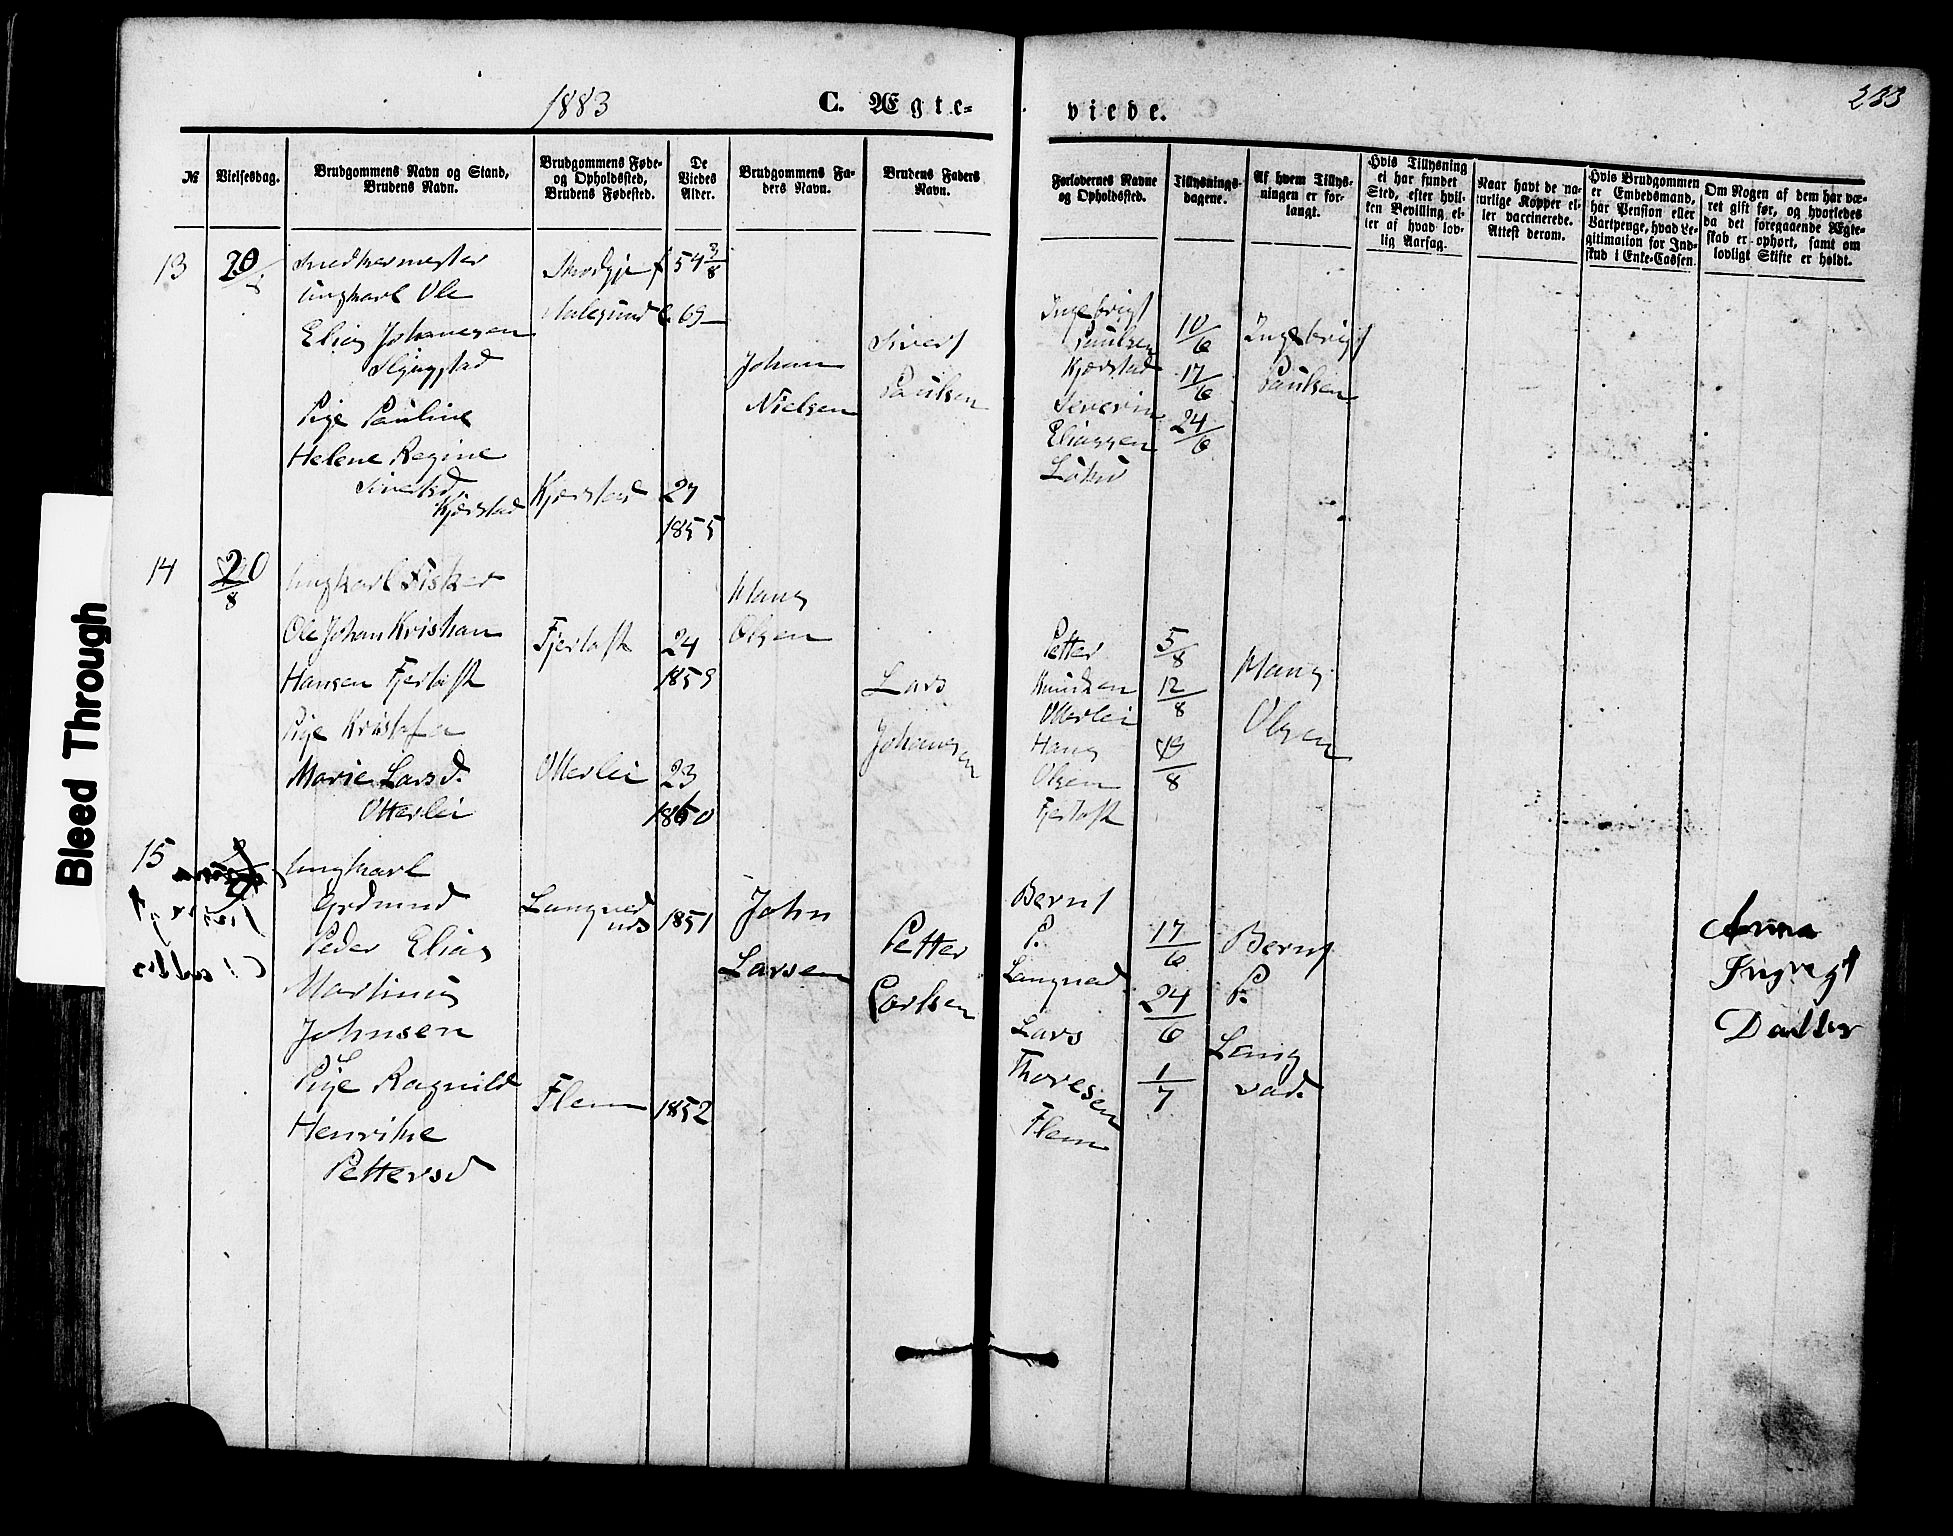 1883
C. Ægte-
viede.
233
№
Vielsesdag.
Brudgommens Navn og Stand,
Brudens Navn.
Brudgommens Føde-
og Opholdssted,
Brudens Fødested.
De
Viedes
Alder.
Brudgommens Fa-
ders Navn.
Brudens Faders
Navn.
Forlovernes Navne
og Opholdssted.
Tillysnings-
dagene.
Af hvem Tillys-
ningen er for-
langt.
Hvis Tillysning
ei har fundet
Sted, efter hvil-
ken Bevilling el-
ler af hvad lov-
lig Aarsag.
Naar havt de na-
turlige Kopper el-
ler vaccinerede.
Attest derom.
Hvis Brudgommen
er Embedsmand,
har Pension eller
Vartpenge, hvad Le-
gitimation for Ind-
skud i Enke-Cassen.
Om Nogen af dem har væ-
ret gift før, og hvorledes
da det foregaaende Ægte-
skab er ophørt, samt om
lovligt Skifte er holdt.
13
20
Snedkermester
Ungkarl Ole
Elias Johanesen
Pige Pauline
Helene Regine
Sivertsd.
Kjærstad
Skodje f
Aalesund
Kjærstad
54 3/8
69
27
1855
Johan
Nielsen
Sivert
Paulsen
Ingebrigt
Paulsen
Kjærstad
Severin
Eliassen
10/6
17/6
24/6
Ingebrigt
Paulsen
14
20/8
Ungkarl Fisker
Ole Johan Kristian
Hansen Fjertoft
Pige Kristofa
Marie Larsd.
Otterlei
Fjertoft
Otterlei
24
1859
23
1860
Hans
Olsen
Lars
Johansen
Petter
Knudsen
Otterlei
Hans
Olsen
Fjertoft
5/8
12/8
19/8
Hans
Olsen
15
Ungkarl
Gudmund
Peder Elias
Martinus
Johnsen
Pige Ragnild
Henrikke
Pettersd
Flem
1851
1852
John
Larsen
Petter
Carlsen
Bernt
P.
Langvad
Lars
Thoresen
Flem
17/6
24/6
1/7
Bernt
P.
Lang
vad.
Anna
Ingvegt
Bleed Through